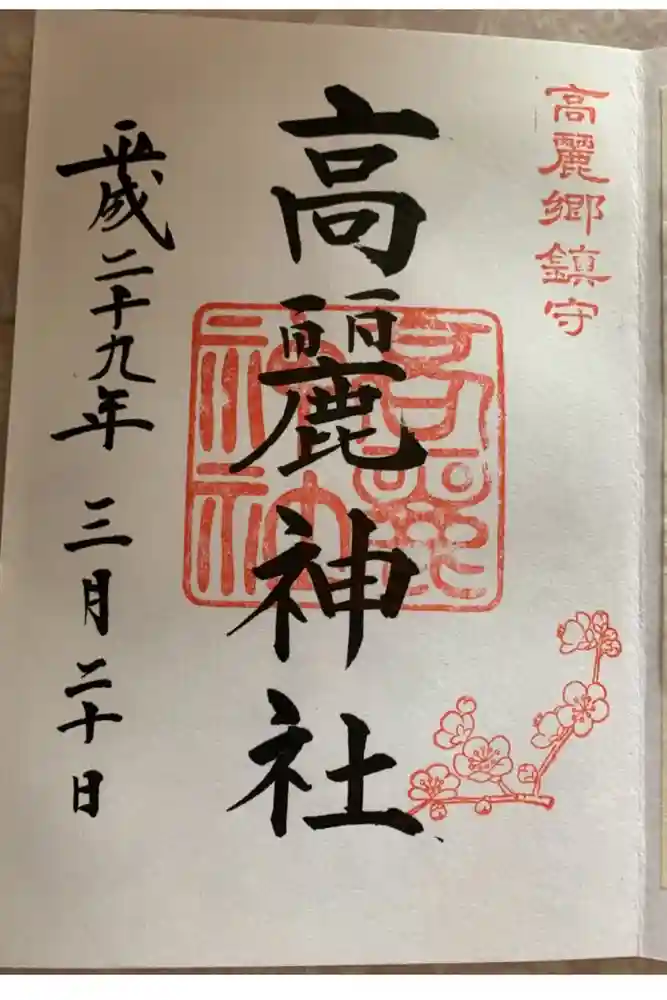 高麗郷鎮守
高麗神社
平成二十九年三月二十日
高麗神社